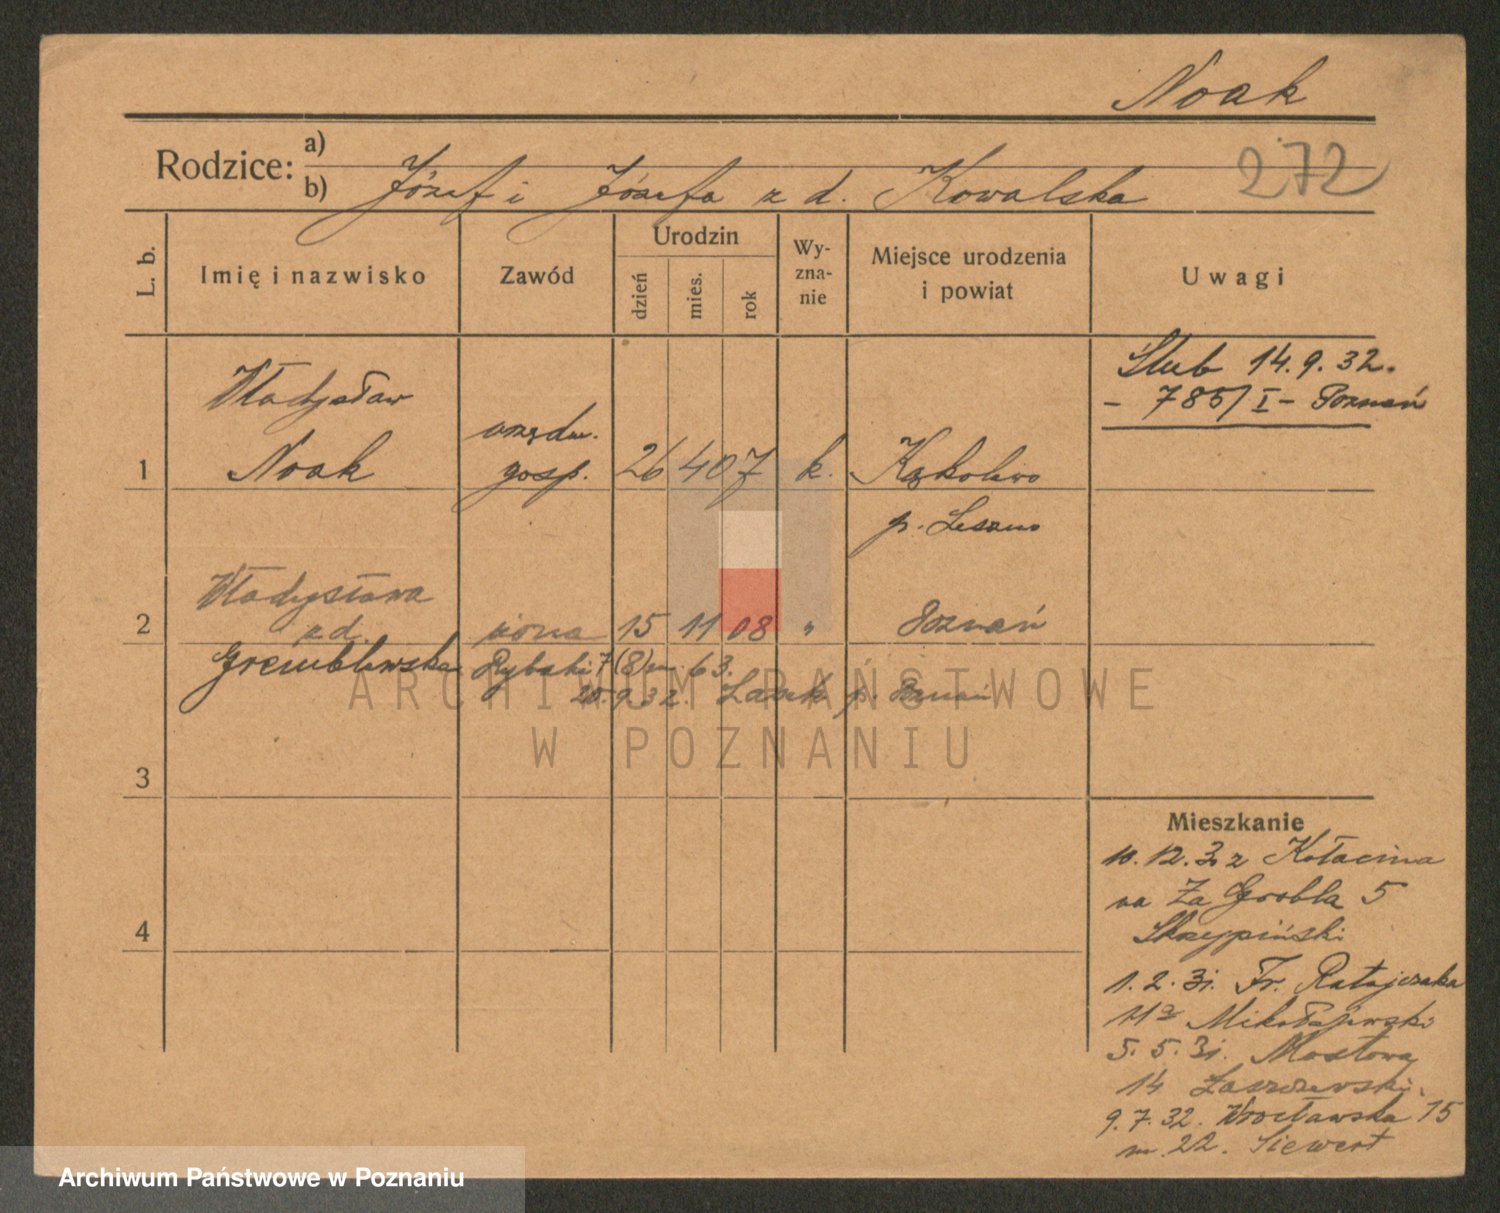 Noak
Rodzice: a)
b) Józef i Józefa z d. Kowalska
272
L. b.
Imię i nazwisko
Zawód
Urodzin
dzień
mies.
rok
Wy-
zna-
nie
Miejsce urodzenia
i powiat
Uwagi
Ślub 14.9.32.
- 785/I - Poznań
1
Władysław
Noak
urzędn.
gosp.
26 4 07
k.
Kąkolewo
p. Leszno
2
Władysława
z d.
Gremblewska
żona
15 11 08
"
Poznań
Rybaki 7 (8) m. 63.
20.9.32. Lasek p. Poznań
3
4
Mieszkanie
10.12.30 z Kołacina
na Za Groblą 5
Skrzypiński
1.2.31. Fr. Ratajczaka
11a Mikołajewski
5.5.31. Mostowa
14 Laszczewski.
9.7.32. Wrocławska 15
m. 22. Siewert
ARCHIWUM PAŃSTWOWE
W POZNANIU
Archiwum Państwowe w Poznaniu